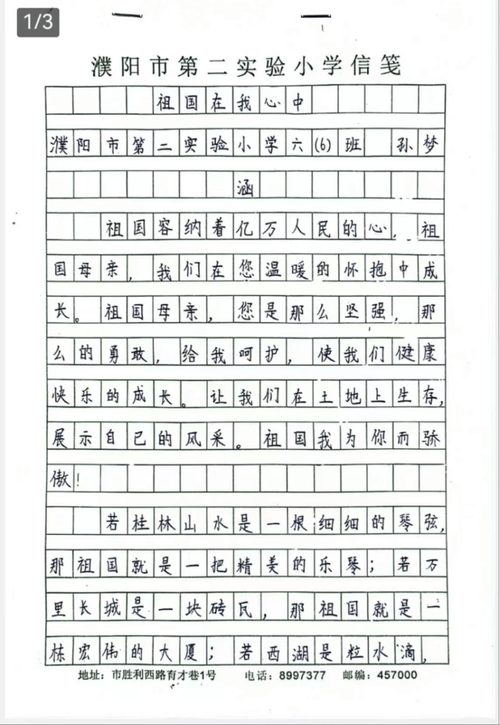 1/3
濮阳市第二实验小学信笺
祖国在我心中
濮阳市第二实验小学六(6)班 孙梦
涵
祖国容纳着亿万人民的心，祖
国母亲，我们在您温暖的怀抱中成
长。祖国母亲，您是那么坚强，那
么的勇敢，给我呵护，使我们健康
快乐的成长。让我们在土地上生存，
展示自己的风采。祖国我为你而骄
傲！
若桂林山水是一根细细的琴弦，
那祖国就是一把精美的乐琴；若万
里长城是一块砖瓦，那祖国就是一
栋宏伟的大厦；若西湖是粒水滴，
地址：市胜利西路育才巷1号 电话：8997377 邮编：457000